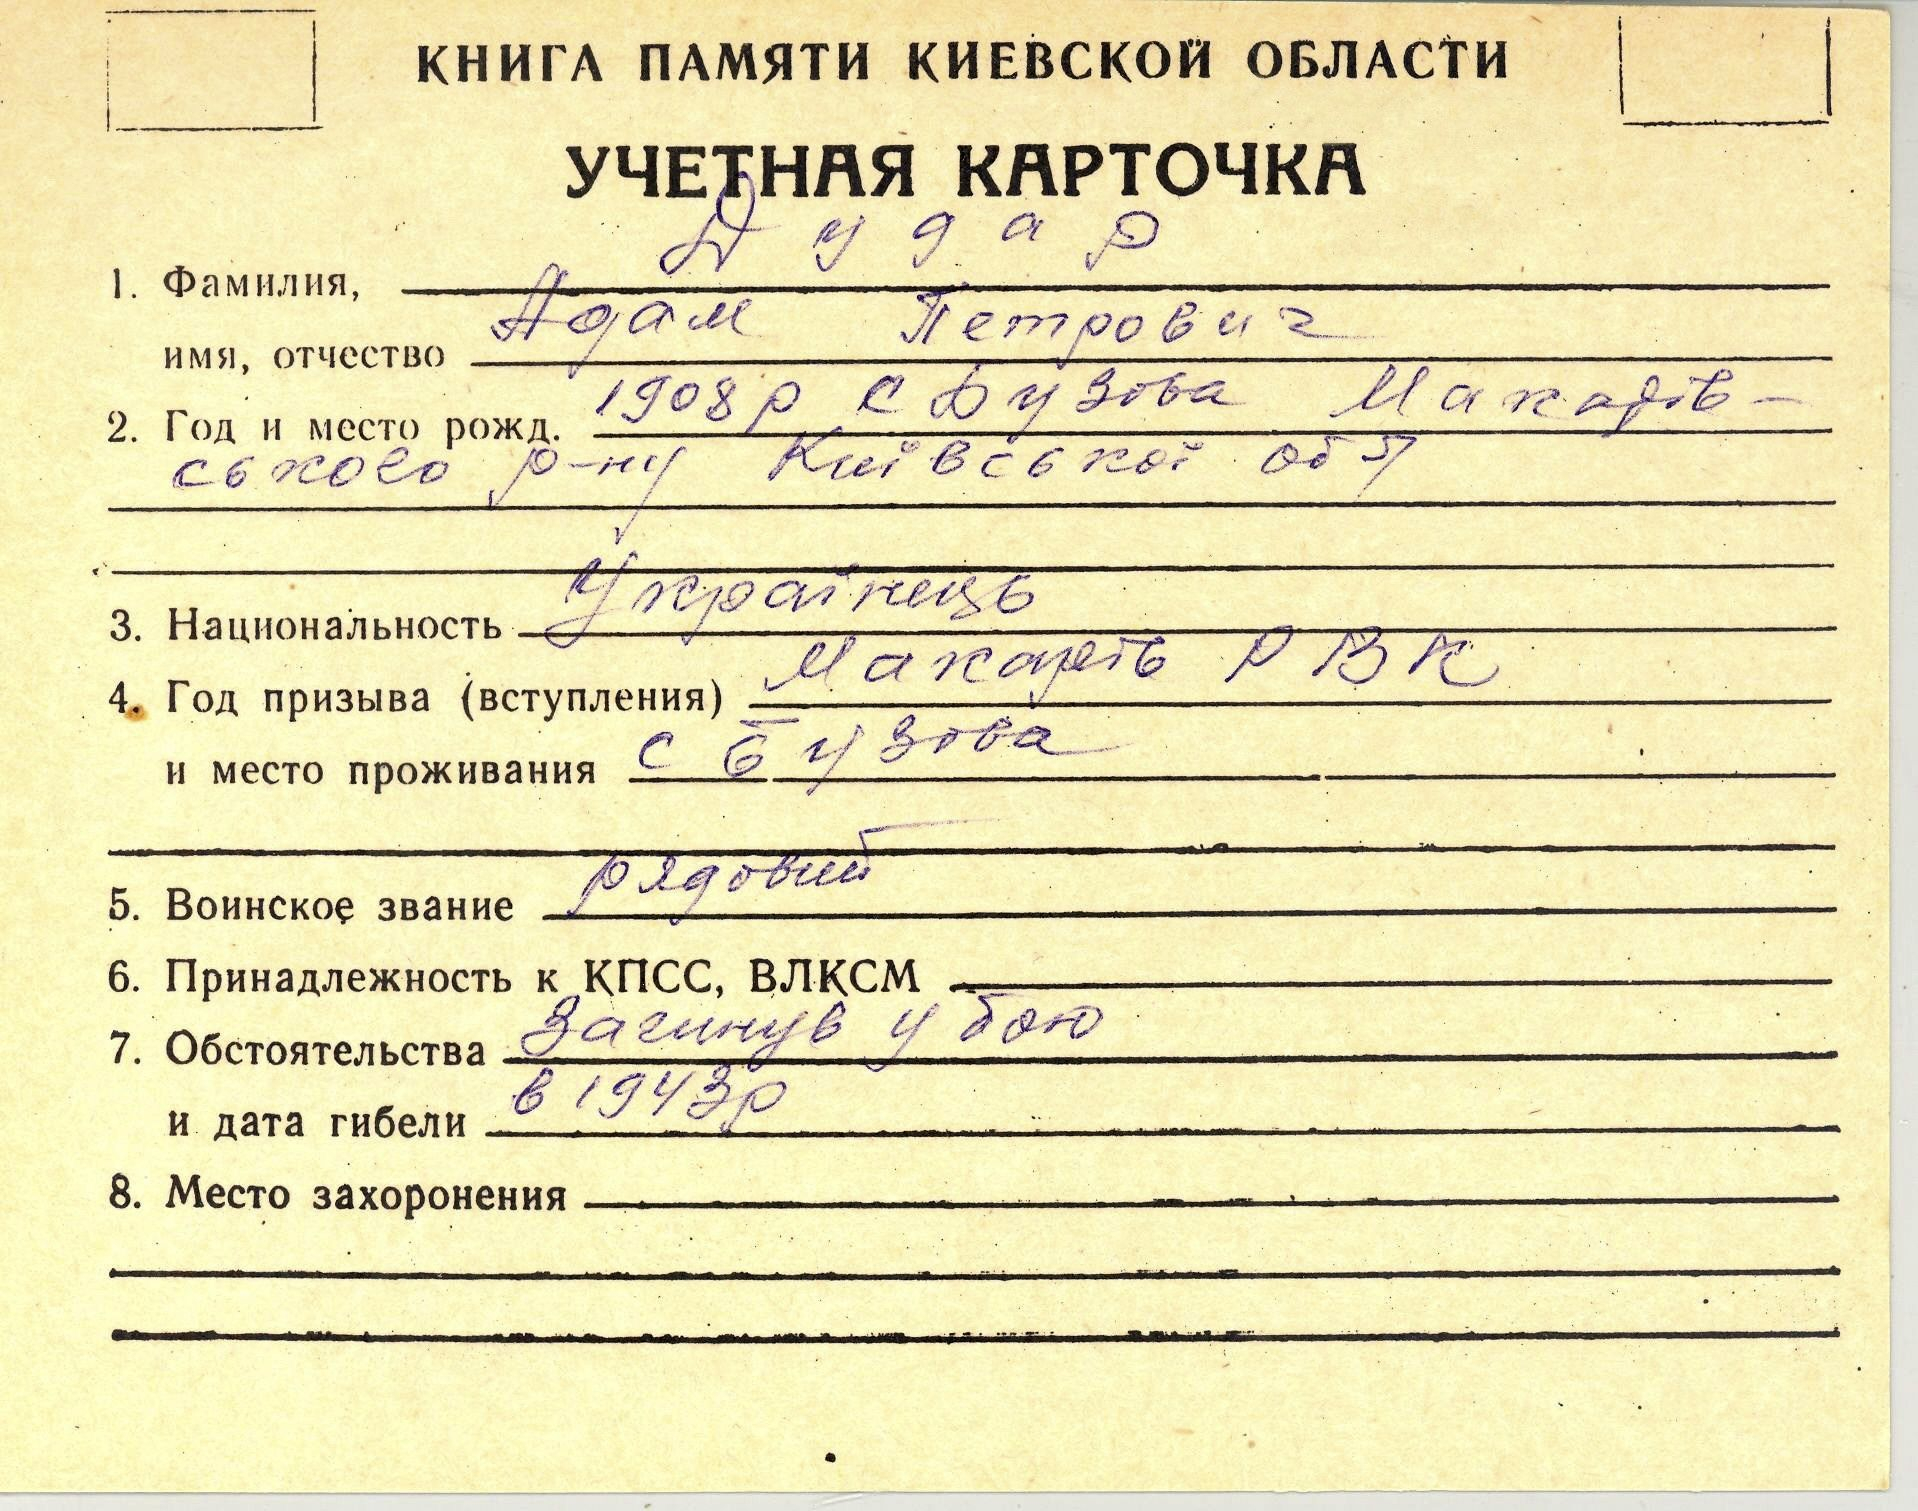 КНИГА ПАМЯТИ КИЕВСКОЙ ОБЛАСТИ
УЧЕТНАЯ КАРТОЧКА
Дудар
1. Фамилия,
Адам Петрович
имя, отчество
1908р с Бузова Макарів-
2. Год и место рожд.
ського р-ну Київської обл
Українець
3. Национальность
Макарів РВК
4. Год призыва (вступления)
с Бузова
и место проживания
рядовий
5. Воинское звание
6. Принадлежность к КПСС, ВЛКСМ
Загинув у бою
7. Обстоятельства
в 1943р
и дата гибели
8. Место захоронения